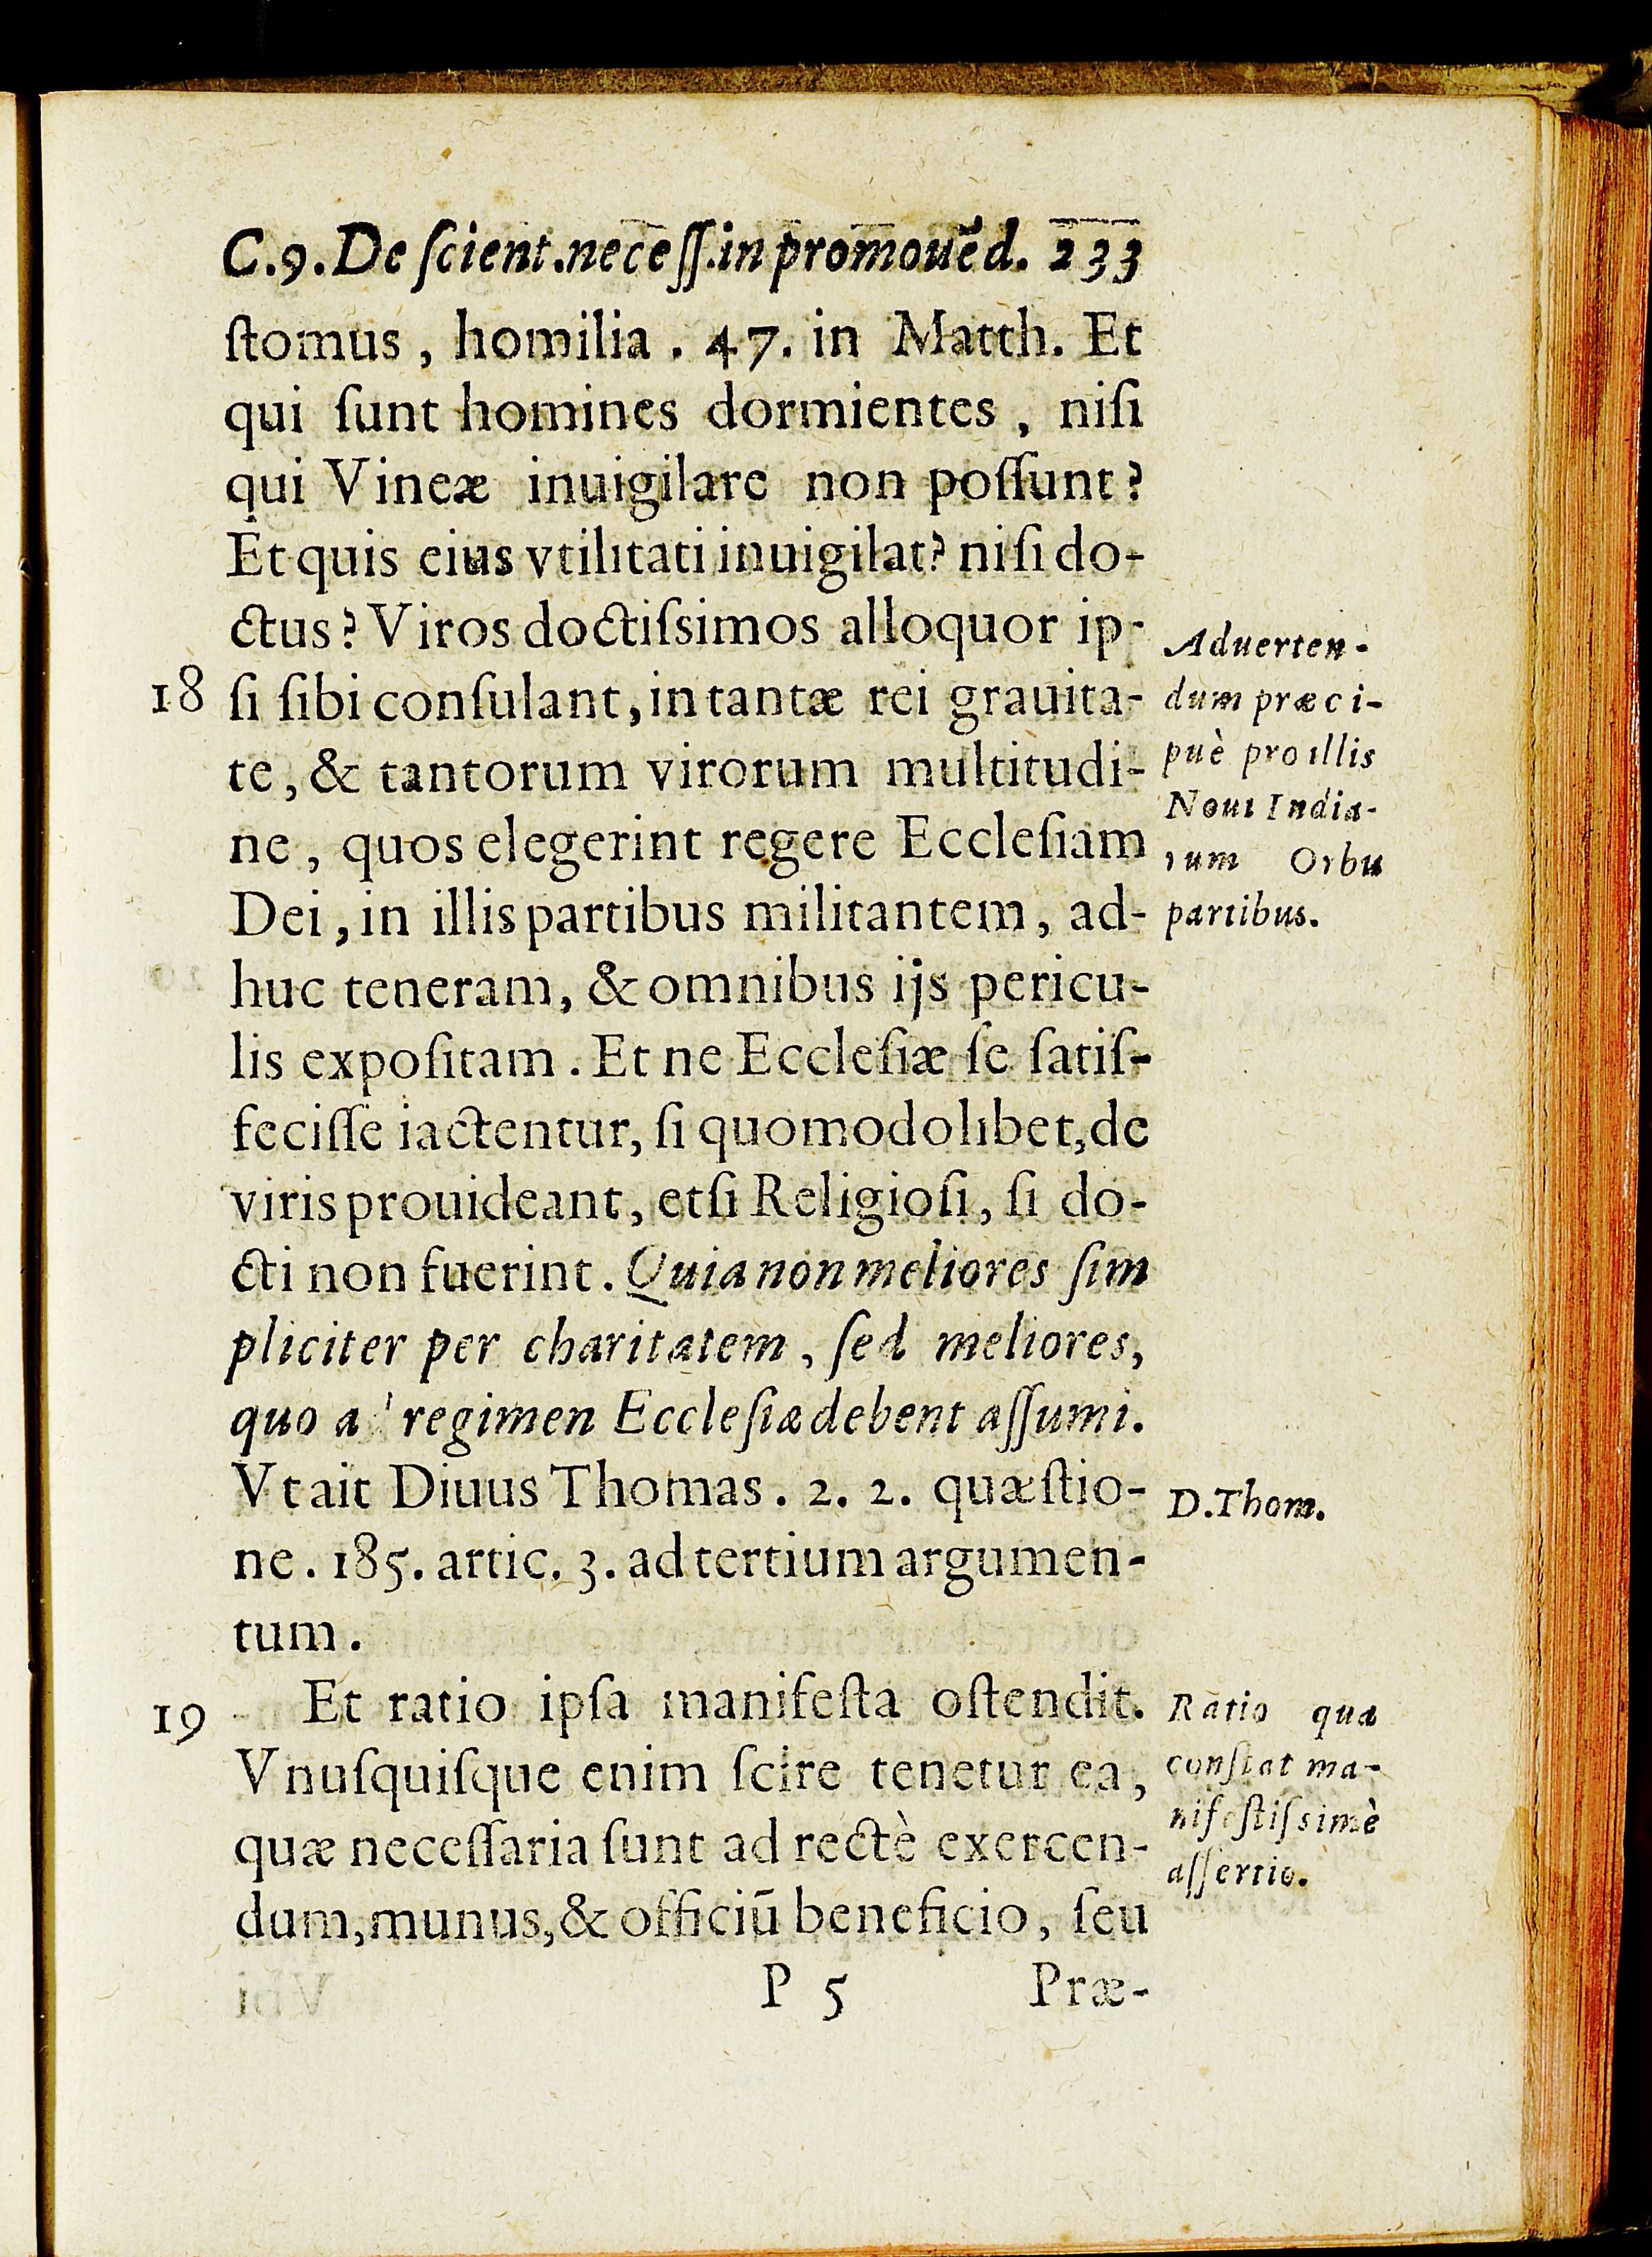 C.9. De ſcient. neceſſ. in promouẽd. 233
ſtomus, homilia. 47. in Matth. Et
qui ſunt homines dormientes, niſi
qui Vineæ inuigilare non poſſunt?
Et quis eius vtilitati inuigilat? niſi do-
ctus? Viros doctiſsimos alloquor ip-
18 ſi ſibi conſulant, in tantæ rei grauita-
te, & tantorum virorum multitudi-
ne, quos elegerint regere Eccleſiam
Dei, in illis partibus militantem, ad-
huc teneram, & omnibus ijs pericu-
lis expoſitam. Et ne Eccleſiæ ſe ſatiſ-
feciſſe iactentur, ſi quomodolibet, de
viris prouideant, etſi Religioſi, ſi do-
cti non fuerint. Quia non meliores ſim
pliciter per charitatem, ſed meliores,
quo a regimen Eccleſiæ debent aſſumi.
Vt ait Diuus Thomas. 2. 2. quæſtio-
ne. 185. artic. 3. ad tertium argumen-
tum.
19 Et ratio ipſa manifeſta oſtendit.
Vnuſquiſque enim ſcire tenetur ea,
quæ neceſſaria ſunt ad rectè exercen-
dum, munus, & officiũ beneficio, ſeu
P 5 Præ-
Aduerten-
dum præci-
puè pro illis
Noui India-
rum Orbis
partibus.
D. Thom.
Ratio qua
conſtat ma-
nifeſtiſsimè
aſſertio.